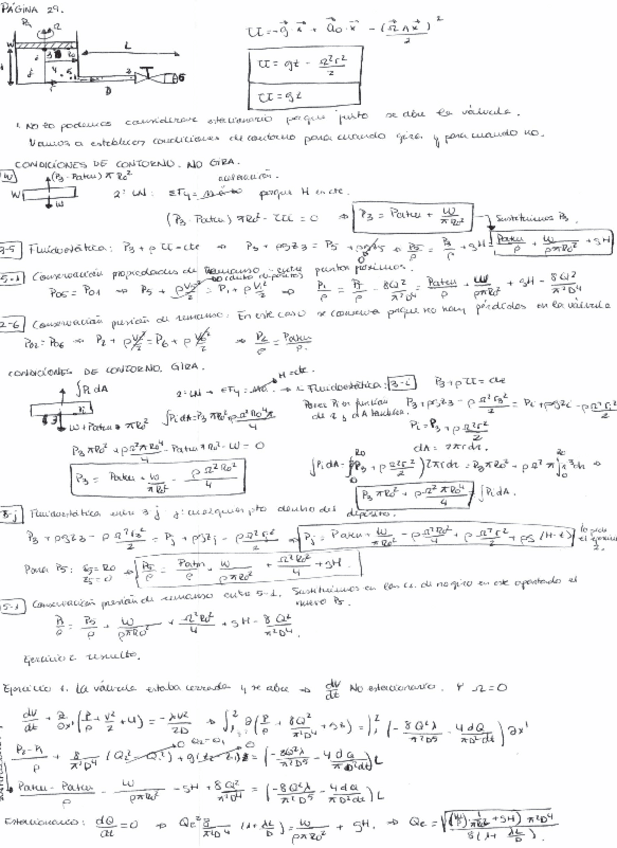 PÁGINA 29.
U = -g⃗·x⃗ + a⃗o·x⃗ - (Ω⃗∧x⃗)²/2
U = gz - Ω²r²/2
U = gz
L
D
No lo podemos considerar estacionario porque justo se abre la válvula.
Vamos a establecer condiciones de contorno para cuando gira y para cuando no.
CONDICIONES DE CONTORNO. NO GIRA.
(P3-Patm)πRo²
aceleración.
W
2ª LN: ΣFy = porque H = cte.
(P3-Patm)πRo² - W = 0 ⇒ P3 = Patm + W/πRo²
Sustituimos P3.
3-5 Fluidoestática: P3 + ρU = cte ⇒ P3 + ρgz3 = P5 + ρgz5 ⇒ P5/ρ = P3/ρ + gH = Patm/ρ + W/ρπRo² + gH
5-1 Conservación propiedades de remanso entre puntos próximos.
Po5 = Po1 ⇒ P5 + ρV5²/2 = P1 + ρV1²/2 ⇒ P1/ρ = P5/ρ - 8Q²/π²D⁴ = Patm/ρ + W/ρπRo² + gH - 8Q²/π²D⁴
2-6 Conservación presión de remanso. En este caso se conserva porque no hay pérdidas en la válvula
Po2 = Po6 ⇒ P2 + ρV2²/2 = P6 + ρV6²/2 ⇒ P2/ρ = Patm/ρ.
CONDICIONES DE CONTORNO. GIRA.
H = cte.
∫PidA
2ª LN → ΣFy = → Fluidoestática: 3-i P3 + ρU = cte
W + Patm·πRo²
∫PidA = P3πRo² + ρΩ²πRo⁴/4
Poner Pi en función de r y dA también.
P3 + ρgz3 - ρΩ²r3²/2 = Pi + ρgzi - ρΩ²ri²/2
Pi = P3 + ρΩ²r²/2
P3πRo² + ρΩ²πRo⁴/4 - PatmπRo² - W = 0
dA = 2πrdr.
P3 = Patm + W/πRo² - ρΩ²Ro²/4
∫PidA = ∫(P3 + ρΩ²r²/2)2πrdr = P3πRo² + ρΩ²π∫r³dr ⇒
P3πRo² + ρΩ²πRo⁴/4 = ∫PidA.
3-j Fluidoestática entre 3 y j: cualquier pto dentro del depósito.
P3 + ρgz3 - ρΩ²r3²/2 = Pj + ρgzj - ρΩ²rj²/2 ⇒ Pj = Patm + W/πRo² - ρΩ²Ro²/4 + ρΩ²r²/2 + ρg(H-z)
Para P5: r5 = Ro z5 = 0 ⇒ P5/ρ = Patm/ρ + W/ρπRo² + Ω²Ro²/4 + gH.
5-1 Conservación presión de remanso entre 5-1. Sustituimos en las cc. de no giro en este apartado el nuevo P5.
P1/ρ = P5/ρ + W/ρπRo² + Ω²Ro²/4 + gH - 8Q²/π²D⁴
Ejercicio resuelto.
Ejercicio 1. La válvula estaba cerrada y se abre ⇒ dV/dt No estacionario. Y Ω=0
dV/dt + ∂/∂x'(P/ρ + V²/2 + U) = -λV²/2D ⇒ ∫₁²∂(P/ρ + 8Q²/π²D⁴ + gz) = ∫₁²(-8Q²λ/π²D⁵ - 4dQ/πD²dt)∂x'
(P2-P1)/ρ + 8/π²D⁴(Q2²-Q1²) + g(z2-z1) = (-8Q²λ/π²D⁵ - 4dQ/πD²dt)L
(Patm-Patm)/ρ - W/ρπRo² - gH + 8Q²/π²D⁴ = (-8Q²λ/π²D⁵ - 4dQ/πD²dt)L
Estacionario: dQ/dt = 0 ⇒ Qe² 8/π²D⁴ (1+λL/D) = W/ρπRo² + gH. ⇒ Qe = √